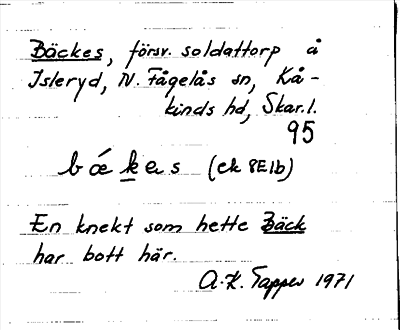 Bäckes, försv. soldattorp å
Isleryd, N. Fågelås sn, Kå-
kinds hd, Skar. l.
95
bǽkes (ek 8E1b)
En knekt som hette Bäck
har bott här.
A.K. Tapper 1971